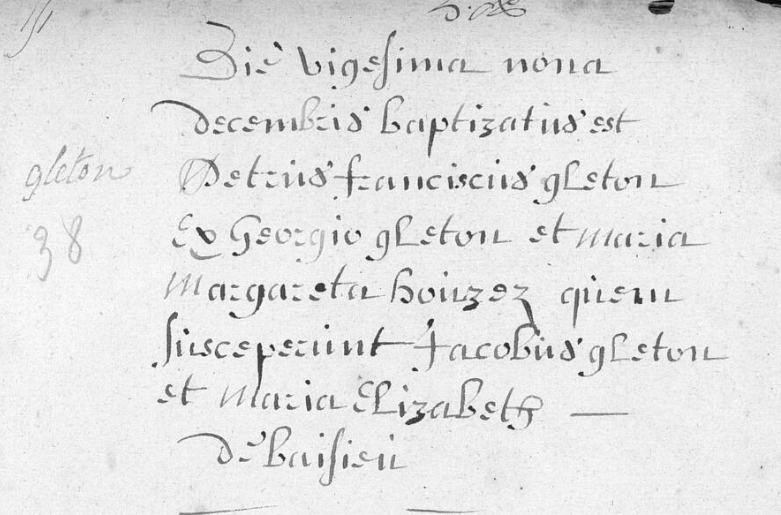 Die vigesima nona
decembris baptizatus est
gleton
Petrus franciscus gleton
Ex Georgio gleton et maria
38
Margareta houzez quem
susceperunt Jacobus gleton
et Maria Elizabeth —
de baisieu